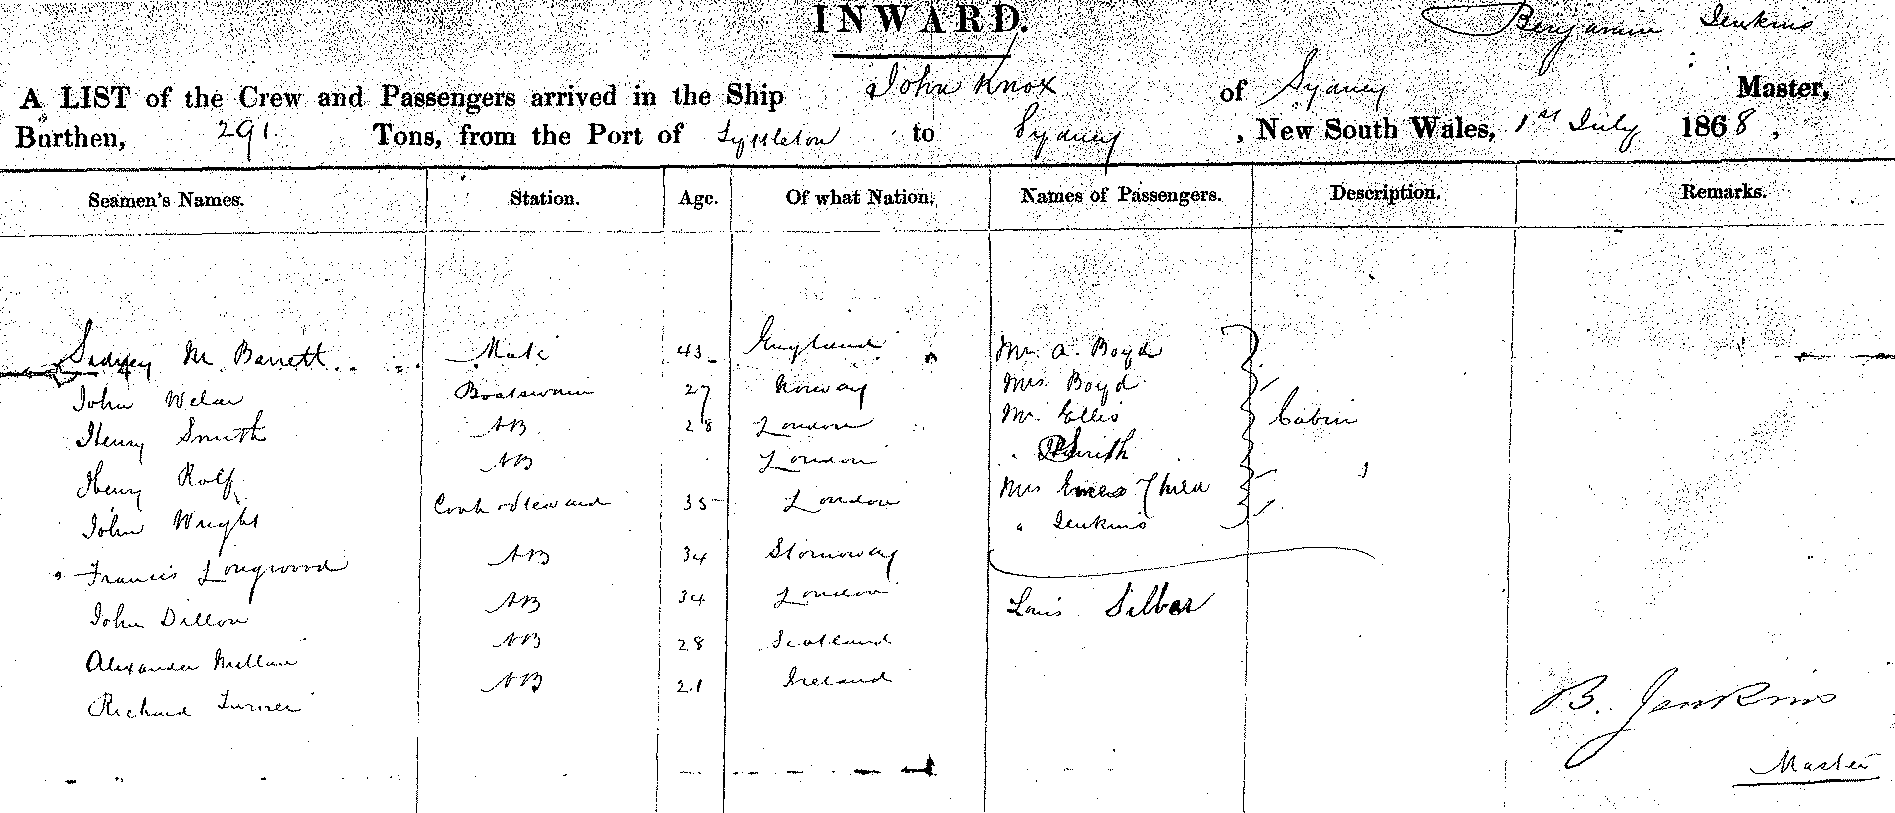 INWARD.
Benjamin Jenkins
A LIST of the Crew and Passengers arrived in the Ship John Knox of Sydney Master,
Burthen, 291 Tons, from the Port of Lyttleton to Sydney, New South Wales, 1st July 1868,
Seamen's Names. Station. Age. Of what Nation. Names of Passengers. Description. Remarks.
Sidney M Barrett Mate 43 England Mr A. Boyd
John Boatswain 27 Norway Mrs Boyd
Henry Smith AB 28 London Mr Ellis Cabin
Henry Rolf AB London " Smith
John Wright Cook & Steward 35 London Mrs Child
" Jenkins
Francis Longwood AB 34 Stornoway
John Dillon AB 34 London Louis Silber
Alexander AB 28 Scotland
Richard Turner AB 21 Ireland
B. Jenkins
Master